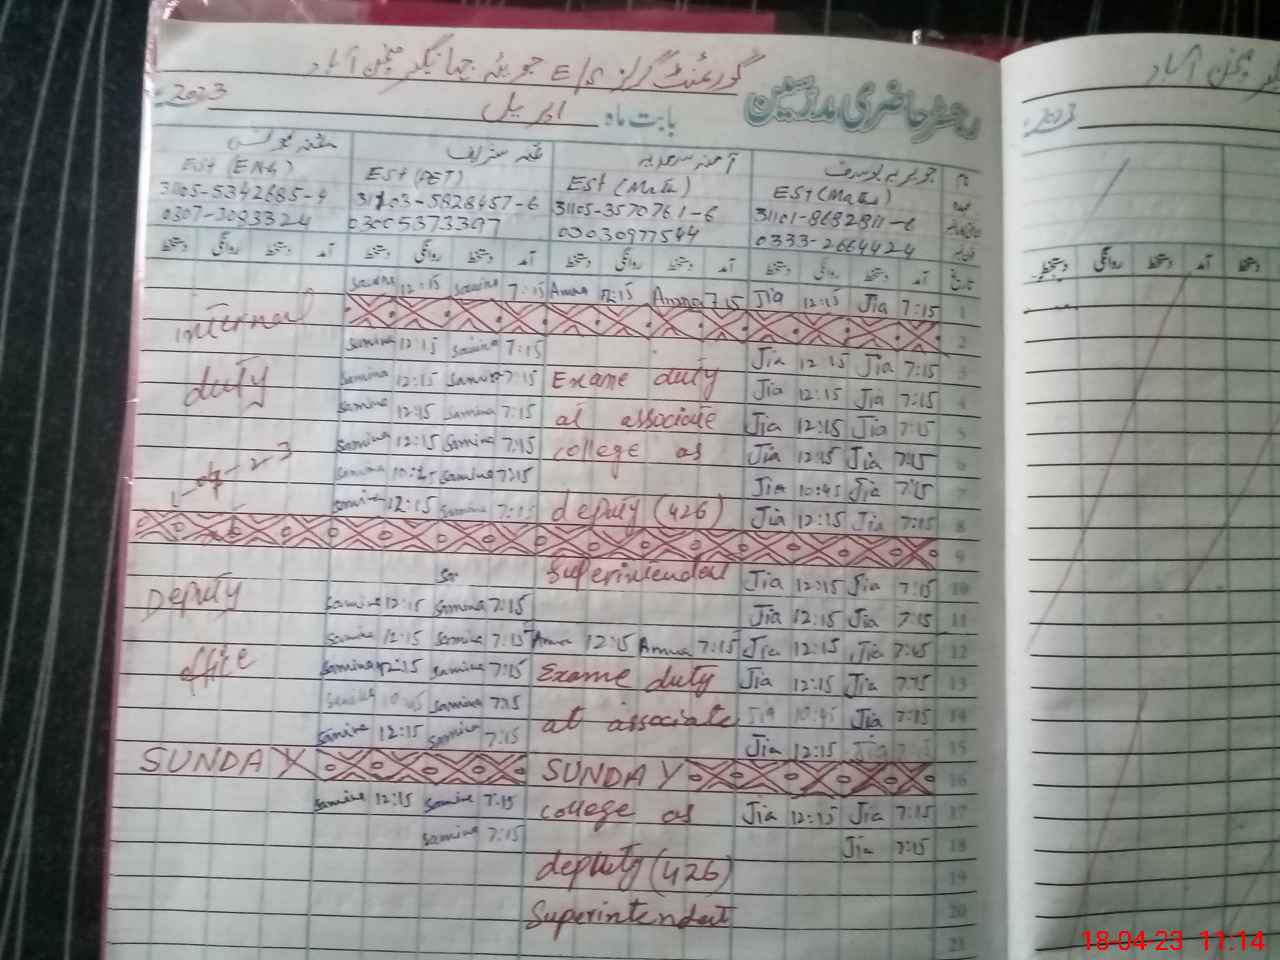 گورنمنٹ گرلز E/S جویہ جہانگیر منچن آباد
رجسٹر حاضری مدرسین
بابت ماہ اپریل 2023
جویریہ یوسف
آمنہ سعدیہ
ثمینہ شریف
نام
ESt (Maths)
ESt (Math)
ESt (PET)
ESt (ENG)
عہدہ
31101-8682811-6
31105-3570761-6
31103-5828457-6
31105-5342685-4
0333-2664424
03030977544
03005373397
0307-3083324
تاریخ آمد دستخط روانگی دستخط آمد دستخط روانگی دستخط آمد دستخط روانگی دستخط آمد دستخط روانگی دستخط
1 7:15 Jia 12:15 Jia 7:15 Amna 12:15 Amna 7:15 Samina 12:15 Samina
2
internal
3 7:15 Jia 12:15 Jia 7:15 Samina 12:15 Samina
4 7:15 Jia 12:15 Jia Exame duty 7:15 Samina 12:15 Samina
duty
5 7:15 Jia 12:15 Jia at associate 7:15 Samina 12:15 Samina
6 7:15 Jia 12:15 Jia college as 7:15 Samina 12:15 Samina
7 7:15 Jia 10:45 Jia 7:15 Samina 10:45 Samina
8 7:15 Jia 12:15 Jia deputy (426) 7:15 Samina 12:15 Samina
9
10 7:15 Jia 12:15 Jia Superintendent Sa
Deputy
11 7:15 Jia 12:15 Jia 7:15 Samina 12:15 Samina
12 7:15 Jia 12:15 Jia 7:15 Amna 12:15 Amna 7:15 Samina 12:15 Samina
office
13 7:15 Jia 12:15 Jia Exame duty 7:15 Samina 12:15 Samina
14 7:15 Jia 10:45 Jia at associate 7:15 Samina 10:45 Samina
15 7:15 Jia 12:15 Jia 7:15 Samina 12:15 Samina
16 SUNDAY SUNDAY
17 7:15 Jia 12:15 Jia college as 7:15 Samina 12:15 Samina
18 7:15 Jia 7:15 Samina
19 deputy (426)
20 Superintendent
21
منچن آباد
2023
آمد دستخط روانگی دستخط
18-04-23 11:14